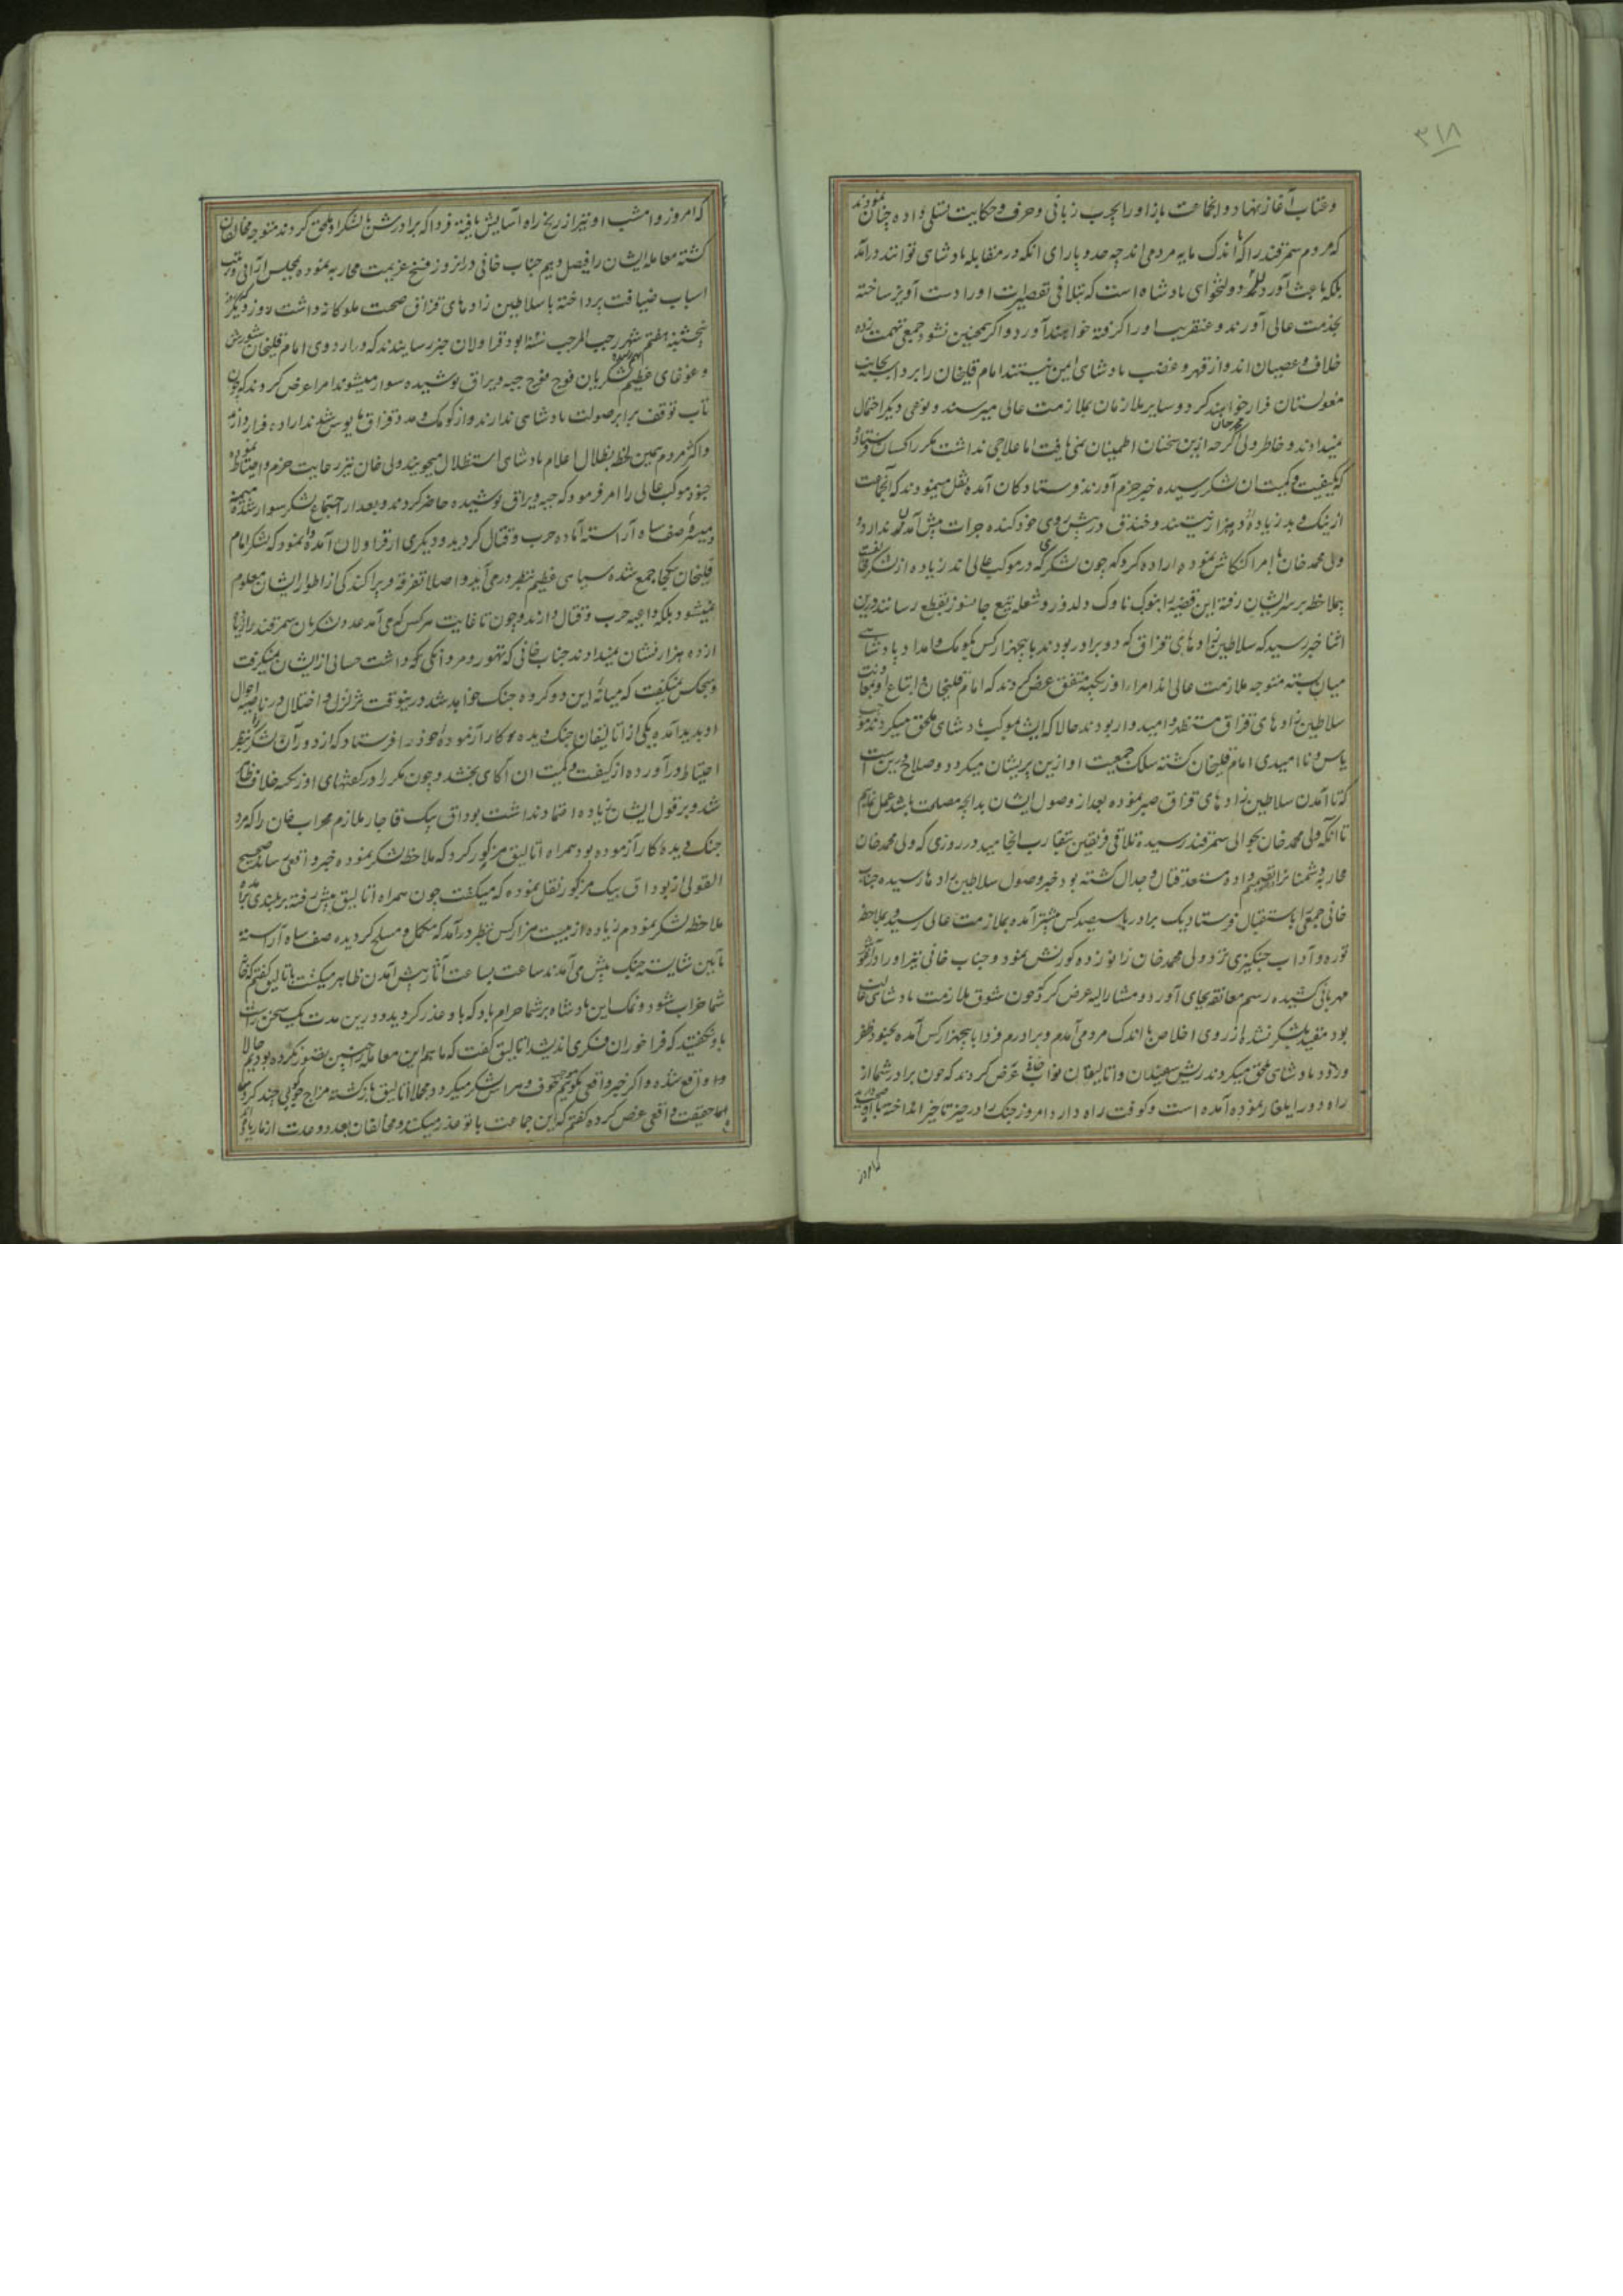 ۳۱۸
و عتاب آغاز نهاد و انجماعت باز او را بچرب زبانی و حرف و حکایت تسلی داده چنان نمودند
که مردم سمرقند را که اندک مایه مردمی اند چه حد و یارای انکه در مقابله پادشاهی توانند درآمد
بلکه باعث آوردن دولتخواهی پادشاه است که بتلافی تقصیرات او را دست آویز ساخته
بخدمت عالی آورند و عنقریب او را گرفته خواهند آورد و اگر همچنین نشود جمعی تهمت زده
خلاف و عصیان اند و از قهر و غضب پادشاهی ایمن نیستند امام قلیخان را برداشته بجانب
مغولستان فرار خواهند کرد و سایر ملازمان بملازمت عالی میرسند و نوعی دیگر احتمال
نمیدادند و خاطر ولی محمد خان اگرچه ازین سخنان اطمینان نمی یافت اما علاجی نداشت مکرر کسان فرستاده
که کیفیت و کمیت ان لشکر رسیده خبر جزم آورند فرستادکان آمده نقل مینمودند که انجماعت
از نیک و بد زیاده از ده هزار نیستند و خندق در پیش روی خود کنده جرات پیش آمدن ندارد
ولی محمد خان با امرا کنکاش نموده اراده کرد که چون لشکری که در موکب عالی اند زیاده از لشکر مخالفت
بملاحظه بر سر ایشان رفته این قضیه را بنوک ناوک دلدوز و شعله تیغ جانسوز بقطع رسانند درین
اثنا خبر رسید که سلاطین زادهای قزاق که دو برادر بودند با پنجهزار کس بکومک و امداد پادشاهی
میان بسته متوجه ملازمت عالی اند امراء اوزبکیه متفق عرض کردند که امام قلیخان و اتباع او بمعاونت
سلاطین زادهای قزاق مستظهر و امیدوار بودند حالا که ایشان بموکب پادشاهی ملحق میکردند موجب
یاس و ناامیدی امام قلیخان گشته سلک جمعیت او ازین پریشان میکردد و صلاح درین است
که تا آمدن سلاطین زادهای قزاق صبر نموده بعد از وصول ایشان بدانچه مصلحت باشد عمل نمایم
تا انکه ولی محمد خان بحوالی سمرقند رسیده تلاقی فریقین بتقارب انجامید در روزی که ولی محمد خان
محاربه دشمنان را تصمیم داده مستعد قتال و جدال گشته بود خبر وصول سلاطین زادها رسیده جناب
خانی جمعی را باستقبال فرستاد یک برادر با سیصد کس پیشتر آمده بملازمت عالی رسید و بملاحظه
توره و آداب چنگیزی نزد ولی محمد خان زانو زده کورنش نمود و جناب خانی نیز او را در آغوش
مهربانی کشیده رسم معانقه بجای آورد و مشارالیه عرض کرد که چون شوق ملازمت پادشاهی غالب
بود مقید بلشکر نشده از روی اخلاص با اندک مردمی آمدم و برادرم فردا با پنجهزار کس آمده بجنود ظفر
ورود پادشاهی ملحق میکردند ریش سفیدان و اتالیقان نواب خانی عرض کردند که چون برادر شما از
راه دور ایلغار نموده آمده است و کوفت راه دارد امروز جنک را در حیز تاخیر انداخته
کامروز
که امروز و امشب او نیز از رنج راه آسایش یافته فردا که برادرش با لشکر او ملحق کردند متوجه مخالفان
گشته معامله ایشان را فیصل دهیم جناب خانی در انروز فسخ عزیمت محاربه نموده مجلس آرائی و ترتیب
اسباب ضیافت پرداخته با سلاطین زادهای قزاق صحبت ملوکانه داشت روز دیگر که
پنجشنبه هفتم شهر رجب المرجب سنه بود قراولان خبر رسانیدند که در اردوی امام قلیخان شورش
و غوغای عظیم لشکریان فوج فوج جیبه و یراق پوشیده سوار میشوند امرا عرض کردند که چون
تاب توقف برابر صولت پادشاهی ندارند و از کومک و مدد قزاق مایوس شدند اراده فرار دارند
و اکثر مردم همین لحظه بظلال اعلام پادشاهی استظلال میجویند ولی خان نیز رعایت حزم و احتیاط نموده
جنود موکب عالی را امر فرمود که جیبه و یراق پوشیده حاضر کردند و بعد از اجتماع لشکر سوار شده میمنه
و میسره صف سپاه آراسته آماده حرب و قتال کردید و دیگری از قراولان آمده وانمود که لشکر امام
قلیخان یکجا جمع شده سپاهی عظیم بنظر درمی آید و اصلا تفرقه و پراکندگی از اطوار ایشان معلوم
نمیشود بلکه داعیه حرب و قتال دارند و چون تا غایت هر کس که می آمد عدد لشکریان سمرقند را زیاده
از ده هزار نشان نمیدادند جناب خانی که تهور و مردانگی که داشت حسابی از ایشان نمیگرفت
و هیچکس نمیگفت که میانه این دو گروه جنک خواهد شد درینوقت تزلزل و اختلال در ناصیه احوال
او پدید آمده یکی از اتالیقان جنک دیده و کار آزموده خود را فرستاد که از دور آن لشکر را بنظر
احتیاط درآورده از کیفیت و کمیت ان آگاهی بخشد و چون مکرر در گفتهای اوزبکیه خلاف ظاهر
شد و بر قول ایشان زیاده اعتماد نداشت بوداق بیک قاجار ملازم محراب خان را که مرد
جنک دیده کار آزموده بود همراه اتالیق مزکور کرد که ملاحظه لشکر نموده خبر واقعی رساند صحیح
القولی از بوداق بیک مزکور نقل نموده که میگفت چون همراه اتالیق پیش رفته بر بلندی
ملاحظه لشکر نمودم زیاده از بیست هزار کس بنظر درآمد که مکمل و مسلح کردیده صف سپاه آراسته
بآیین شایسته جنک پیش می آمدند ساعت بساعت آثار پیش آمدن ظاهر میگشت باتالیق گفتم که خانه
شما خراب شود و نمک این پادشاه بر شما حرام باد که باو عذر کردید و درین مدت یک سخن راست
باو نگفتید که فراخور ان فکری اندیشد اتالیق گفت که ما هم این معامله را چنین تصور نکرده بودیم حالا
واقع شده و اگر خبر واقعی بگویم موجب خوف و هراس لشکر میکردد مجملا اتالیق بازگشته مزاج گوئی چند کرد
اما حقیقت واقعی عرض کرده گفتم که این جماعت با تو عذر میکنند و مخالفان بعدد و عدت از ما